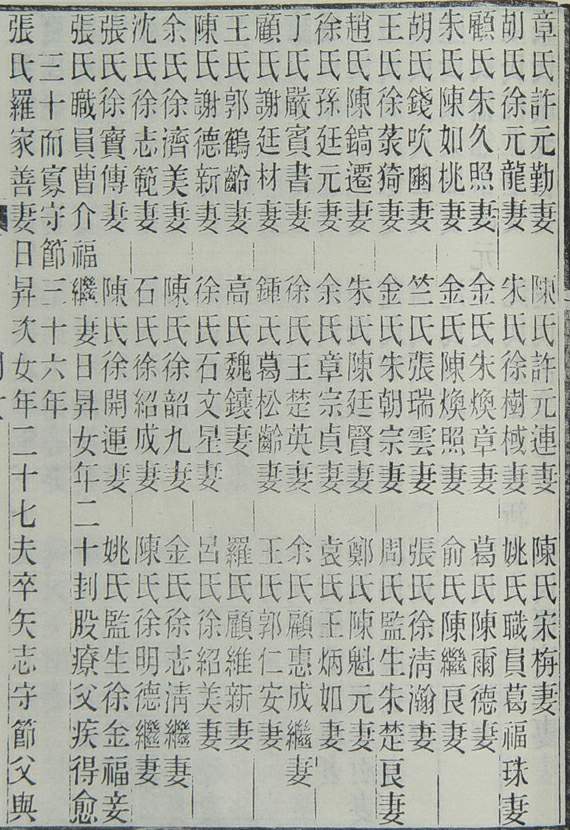 章氏許元勤妻 陳氏許元連妻 陳氏宋梅妻
胡氏徐元龍妻 朱氏徐樹棫妻 姚氏職員葛福珠妻
顧氏朱久照妻 金氏朱煥章妻 葛氏陳爾德妻
朱氏陳如桃妻 金氏陳煥照妻 俞氏陳繼良妻
胡氏錢吹豳妻 竺氏張瑞雲妻 張氏徐清瀚妻
王氏徐菉猗妻 金氏朱朝宗妻 周氏監生朱楚良妻
趙氏陳鎬遷妻 朱氏陳廷賢妻 鄭氏陳魁元妻
徐氏孫廷元妻 余氏章宗貞妻 袁氏王炳如妻
丁氏嚴賓書妻 徐氏王楚英妻 余氏顧惠成繼妻
顧氏謝廷材妻 鍾氏葛松齡妻 王氏郭仁安妻
王氏郭鶴齡妻 高氏魏鑲妻 羅氏顧維新妻
陳氏謝德新妻 徐氏石文星妻 呂氏徐紹美妻
余氏徐濟美妻 陳氏徐韶九妻 金氏徐志清繼妻
沈氏徐志範妻 石氏徐紹成妻 陳氏徐明德繼妻
張氏徐寶傳妻 陳氏徐開運妻 姚氏監生徐金福妾
張氏職員曹介福繼妻日昇女年二十刲股療父疾得愈
三十而寡守節三十六年
張氏羅家善妻日昇次女年二十七夫卒矢志守節父與